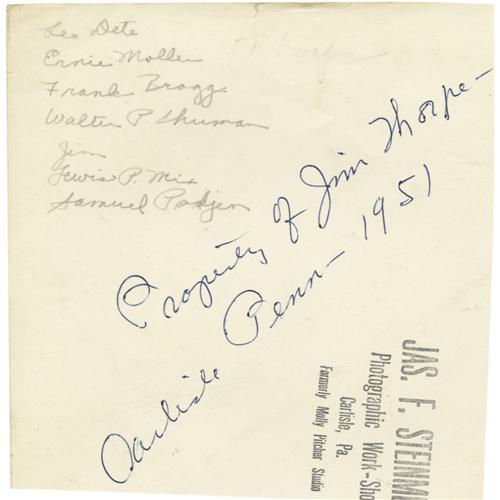 Leo Dete
Thorpe
Ernie Moller
Frank Bragg
Walter P. Shuman
Jim
Lewis P. Mix
Samuel Padjen
Property of Jim Thorpe-
Carlisle Penn- 1951
JAS. F. STEINM
Photographic Work-Sho
Carlisle, Pa.
Formerly Molly Pitcher Studio